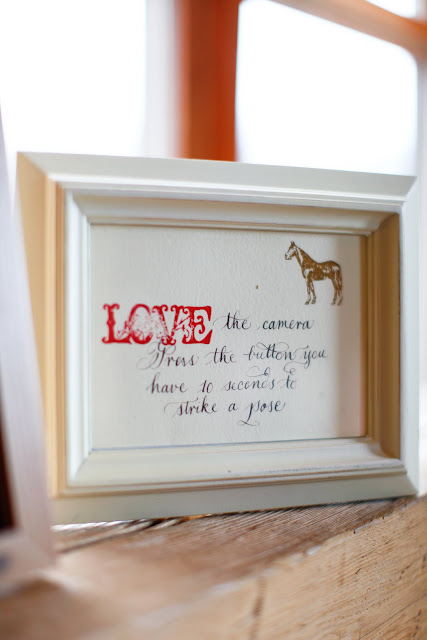 LOVE the camera
Press the button you
have 10 seconds to
strike a pose